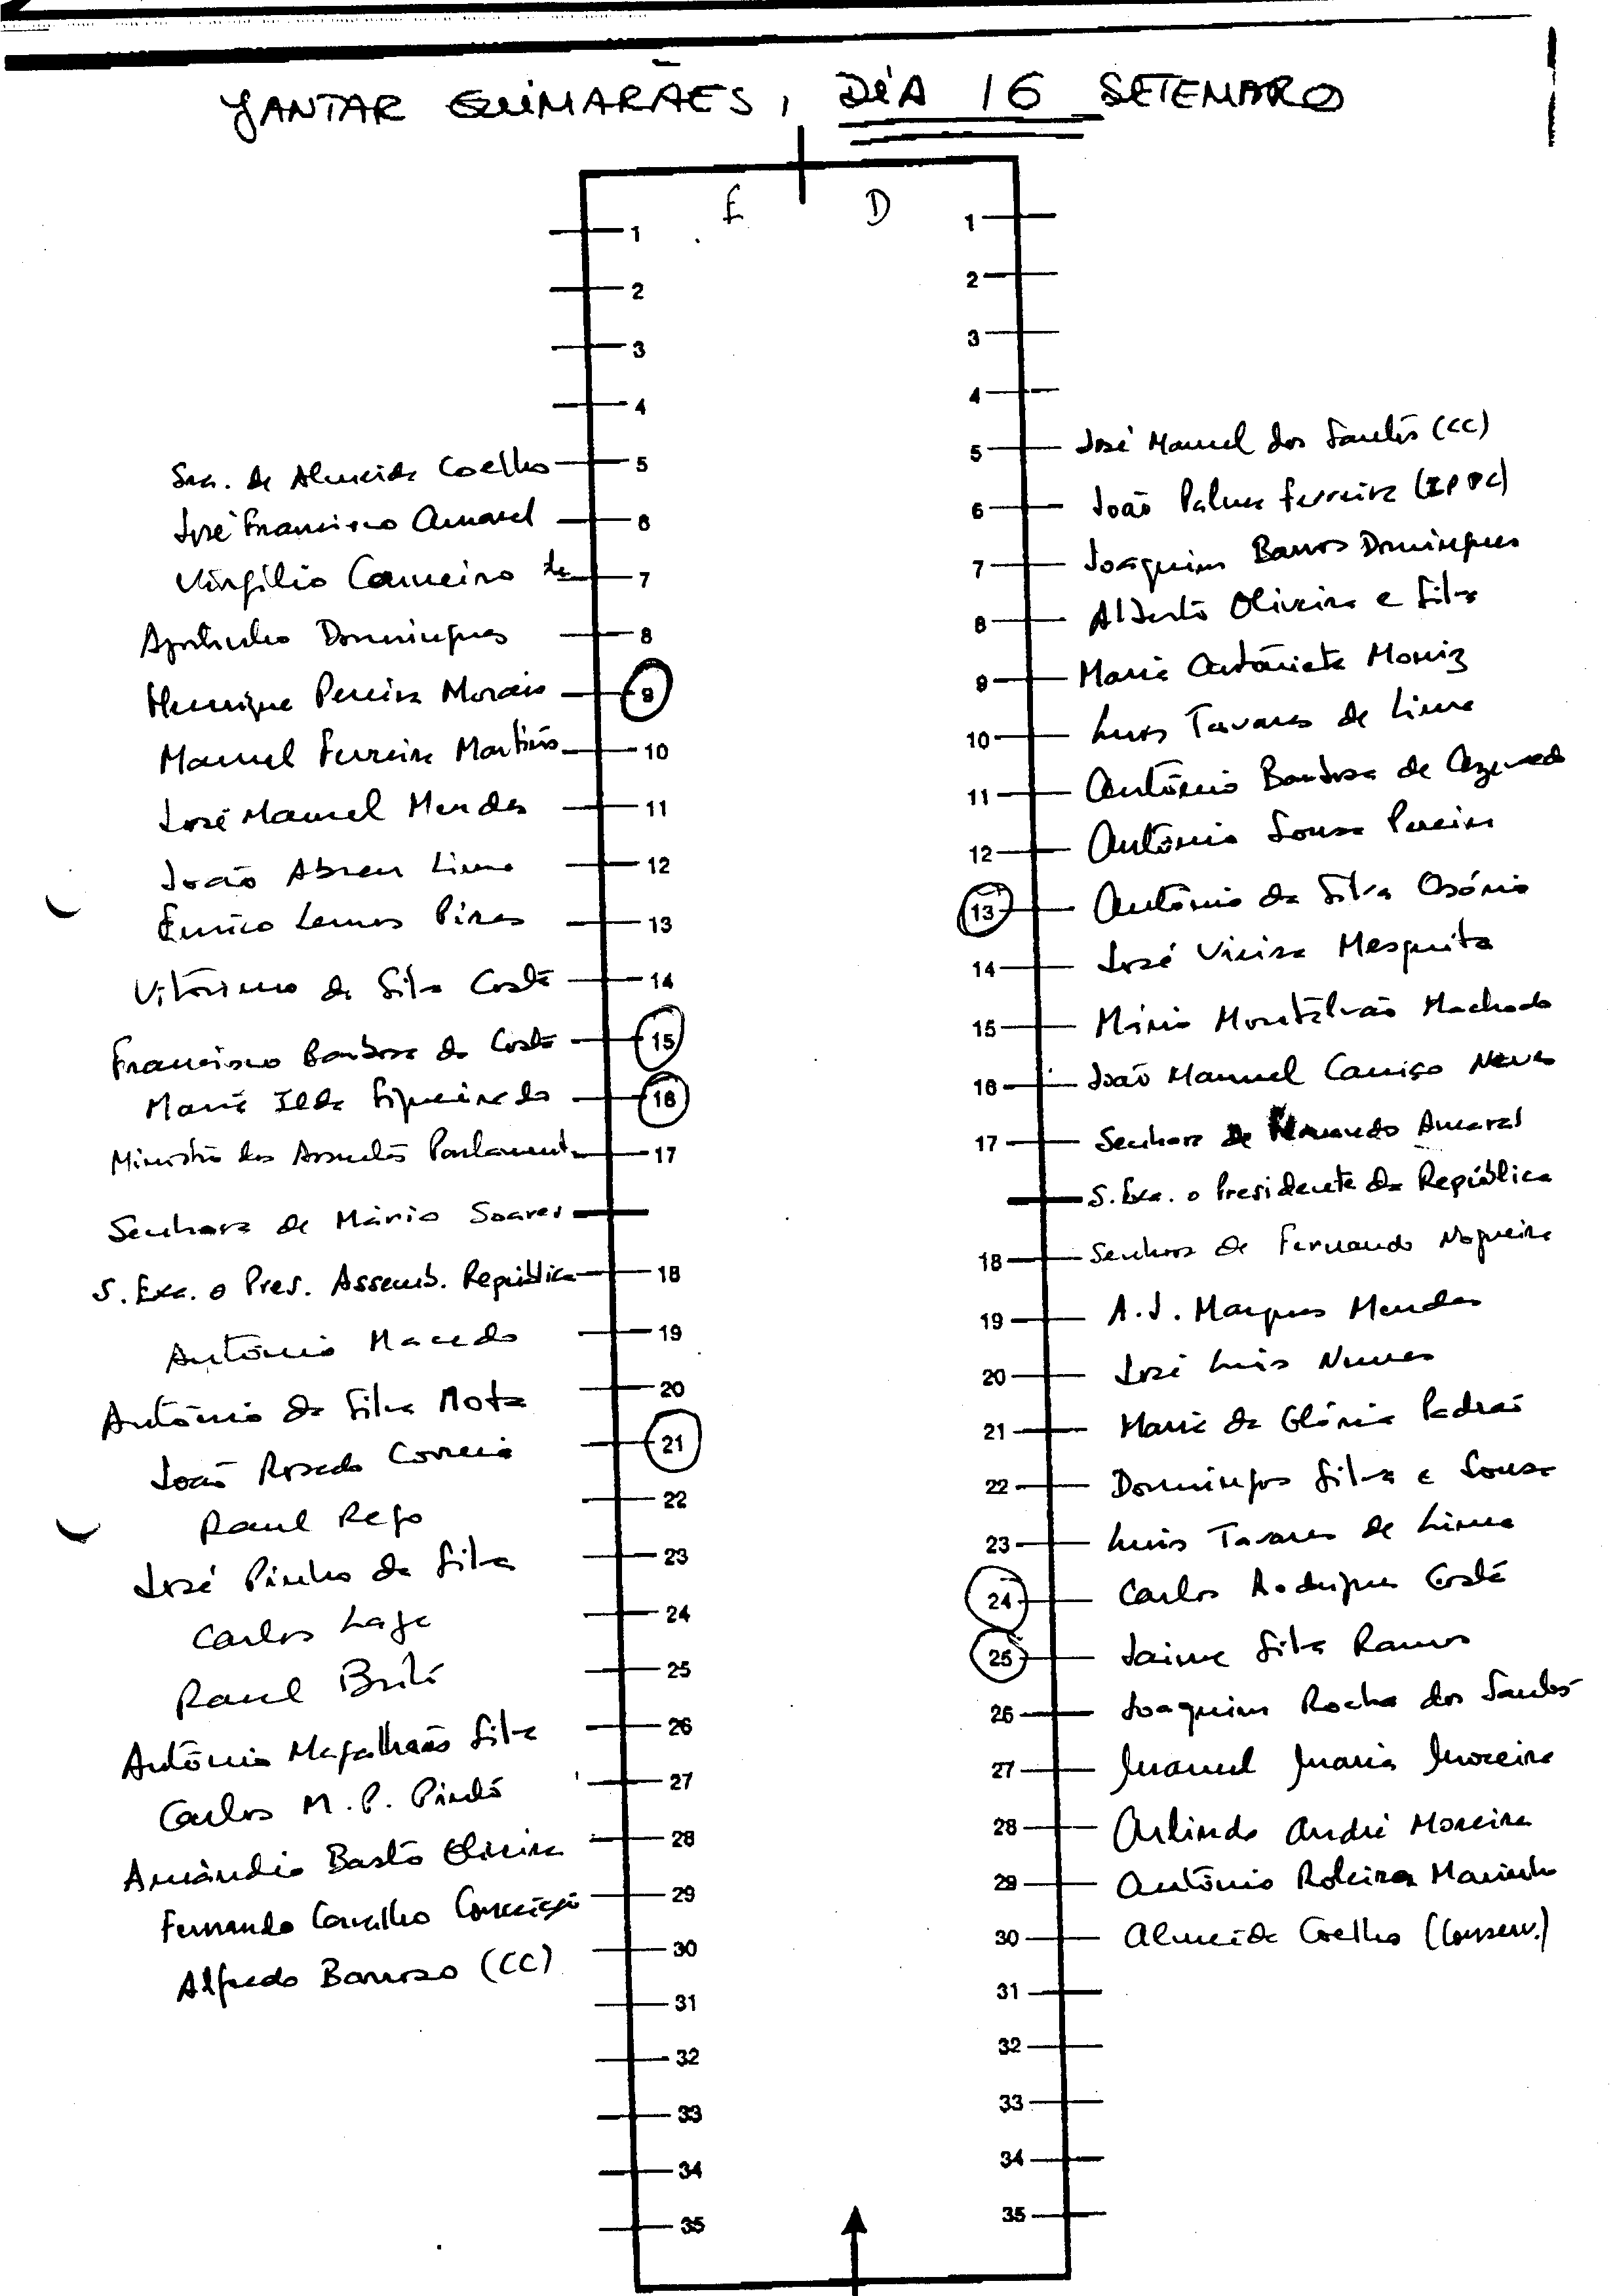 JANTAR GUIMARÃES, DIA 16 SETEMBRO
E D
1 1
2 2
3 3
4 4
Sra. de Almeida Coelho 5
José Francisco Amaral 6
Virgílio Carneiro 7
Agostinho Domingues 8
Henrique Pereira Morais 9
Manuel Ferreira Martins 10
José Manuel Mendes 11
João Abreu Lima 12
Eurico Lemos Pires 13
Vitorino da Silva Costa 14
Francisco Barbosa da Costa 15
Maria Ilda Figueiredo 16
Ministro dos Assuntos Parlament. 17
Senhora de Mário Soares
S. Exa. o Pres. Assemb. República 18
António Macedo 19
António da Silva Mota 20
João Rosado Correia 21
Raul Rego 22
José Pinho da Silva 23
Carlos Lage 24
Raul Brito 25
António Magalhães Silva 26
Carlos M. P. Pinto 27
Amândio Basto Oliveira 28
Fernando Carvalho Conceição 29
Alfredo Barroso (CC) 30
31
32
33
34
35
5 José Manuel dos Santos (CC)
6 João Palma Ferreira (IPPC)
7 Joaquim Barros Domingues
8 Alberto Oliveira e Silva
9 Maria Antonieta Moniz
10 Luis Tavares de Lima
11 António Barbosa de Azevedo
12 António Sousa Pereira
13 António da Silva Osório
14 José Vieira Mesquita
15 Mário Montalvão Machado
16 João Manuel Caniço Neves
17 Senhora de Fernando Amaral
S. Exa. o Presidente da República
18 Senhora de Fernando Nogueira
19 A. J. Marques Mendes
20 José Luis Nunes
21 Maria da Glória Padrão
22 Domingos Silva e Sousa
23 Luis Tavares de Lima
24 Carlos Rodrigues Costa
25 Jaime Silva Ramos
26 Joaquim Rocha dos Santos
27 Manuel Maria Moreira
28 Arlindo André Moreira
29 António Roleira Marinho
30 Almeida Coelho (Conserv.)
31
32
33
34
35